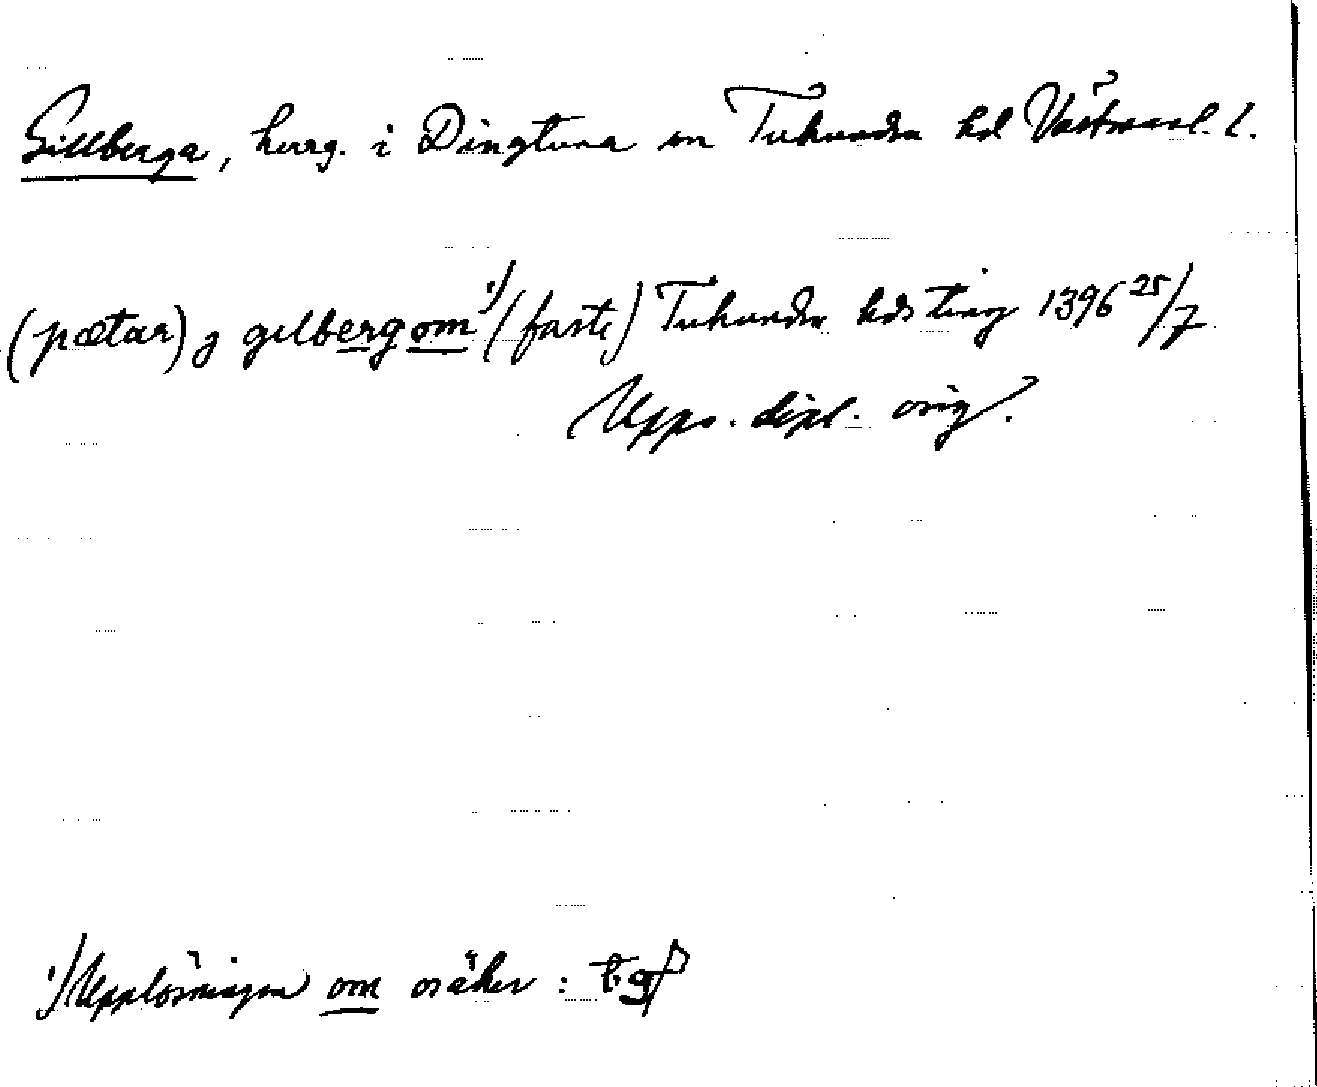 Gillberga, herrg. i Dingtuna sn Tuhundra hd Västmanl. l.
(pætar) j gilbergom ¹/ (faste) Tuhundra hds ting 1396 25/7
Upps. dipl. orig.
¹/ Upplösningen om osäker :